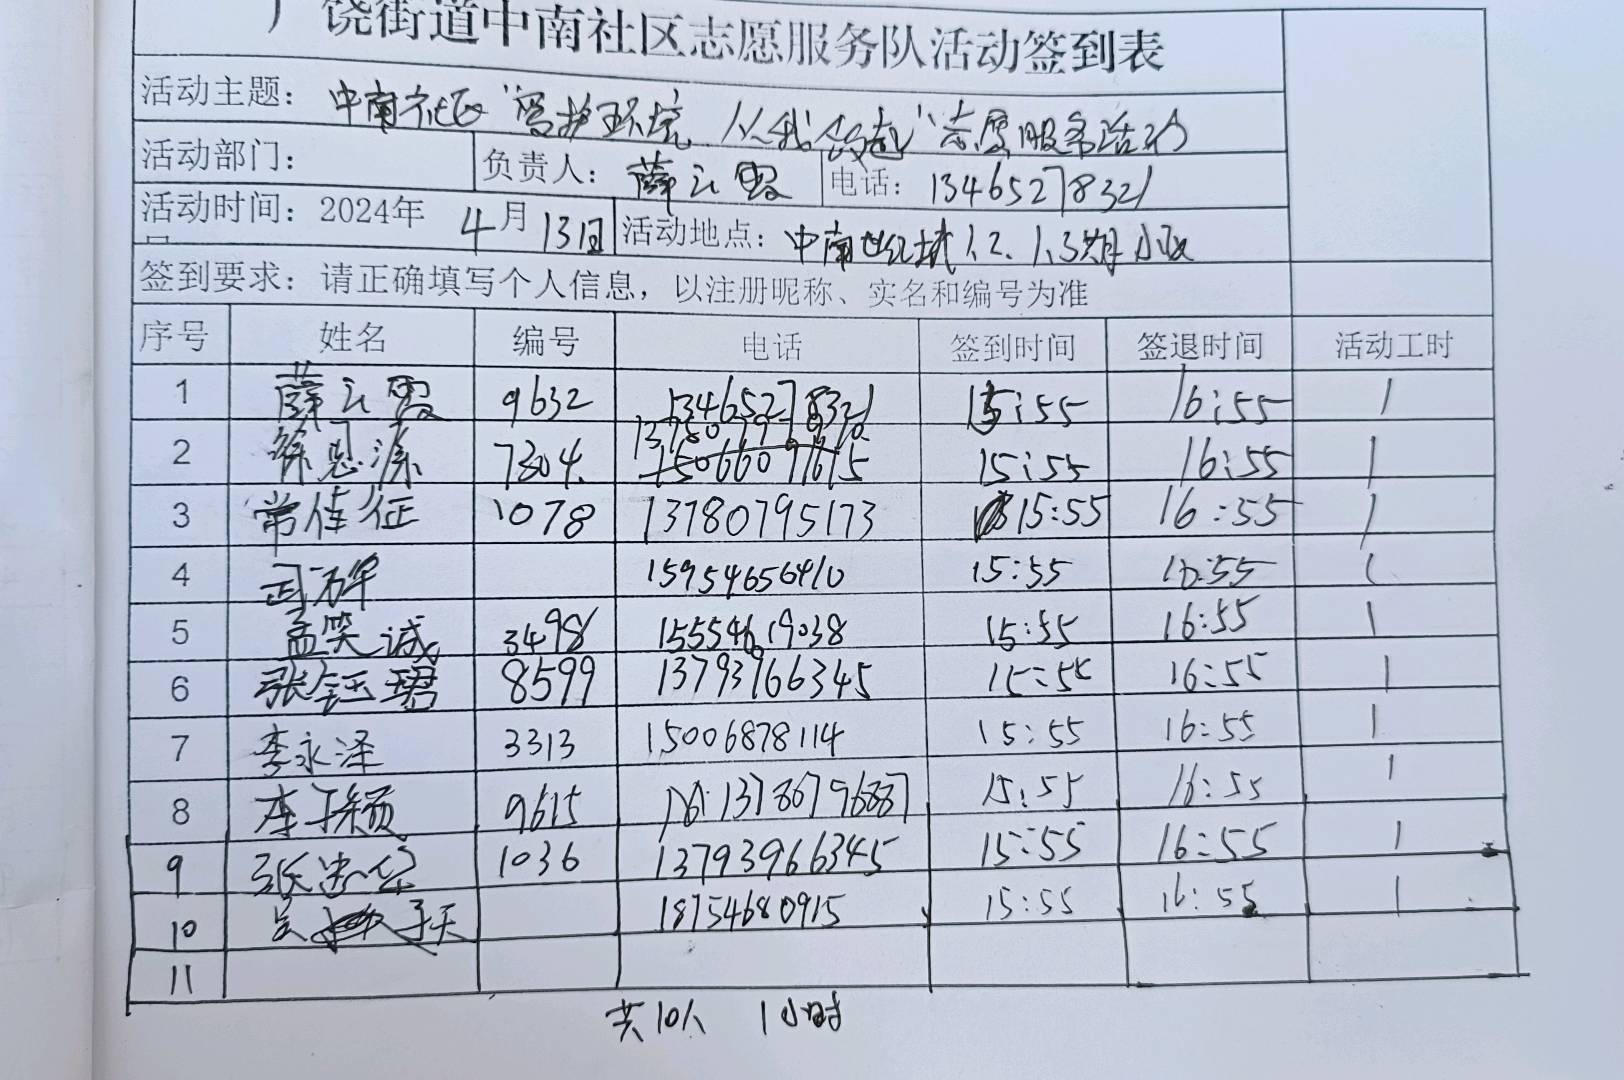 广饶街道中南社区志愿服务队活动签到表
活动主题：中南社区“爱护环境 从我做起”志愿服务活动
活动部门： 负责人：薛云霞 电话：13465278321
活动时间：2024年4月13日 活动地点：中南世纪城1.2.1.3期小区
签到要求：请正确填写个人信息，以注册昵称、实名和编号为准
序号 姓名 编号 电话 签到时间 签退时间 活动工时
1 薛云霞 9632 13465278321 15:55 16:55 1
2 徐思源 7804 15:55 16:55 1
3 常佳征 1078 13780795173 15:55 16:55 1
4 15954656410 15:55 16:55 1
5 孟笑诚 3498 15554619038 15:55 16:55 1
6 张钰珺 8599 13793966345 15:55 16:55 1
7 李永泽 3313 15006878114 15:55 16:55 1
8 李子颖 9615 15:55 16:55 1
9 张 1036 13793966345 15:55 16:55 1
10 18754680915 15:55 16:55 1
11
共10人 1小时